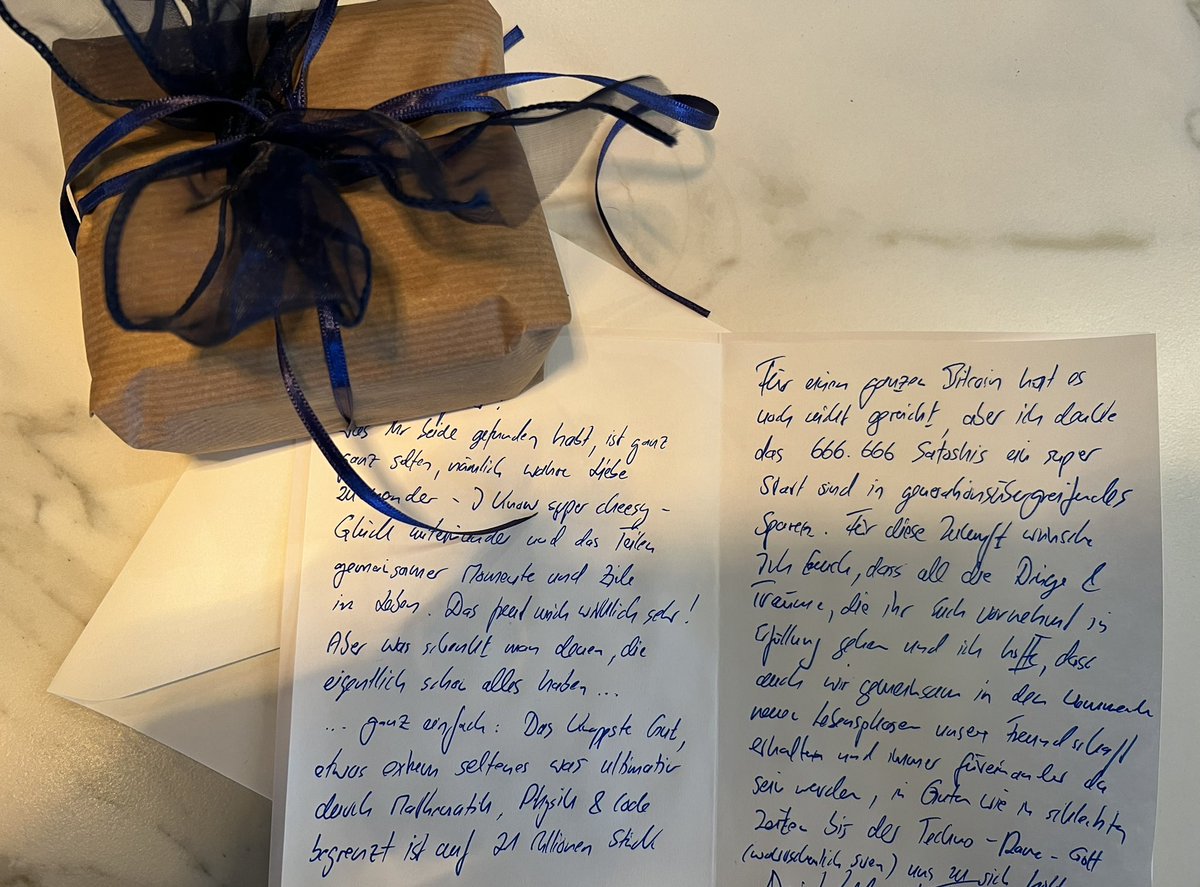 was Ihr beide gefunden habt, ist ganz
ganz selten, nämlich wahre Liebe
zueinander - I know super cheesy -
Glück miteinander und das Teilen
gemeinsamer Momente und Ziele
im Leben. Das freut mich wirklich sehr!
Aber was schenkt man denen, die
eigentlich schon alles haben...
... ganz einfach: Das knappste Gut,
etwas extrem seltenes was ultimativ
durch Mathematik, Physik & Code
begrenzt ist auf 21 Millionen Stück
Für einen ganzen Bitcoin hat es
noch nicht gereicht, aber ich dachte
das 666.666 Satoshis ein super
Start sind in generationsübergreifendes
Sparen. Für diese Zukunft wünsche
Ich Euch, dass all die Dinge &
Träume, die ihr Euch vornehmt in
Erfüllung gehen und ich hoffe, dass
auch wir gemeinsam in den kommenden
neuen Lebensphasen unsere Freundschaft
erhalten und immer füreinander da
sein werden, in Guten wie in schlechten
Zeiten bis der Techno-Rave-Gott
(wahrscheinlich Sven) uns zu sich